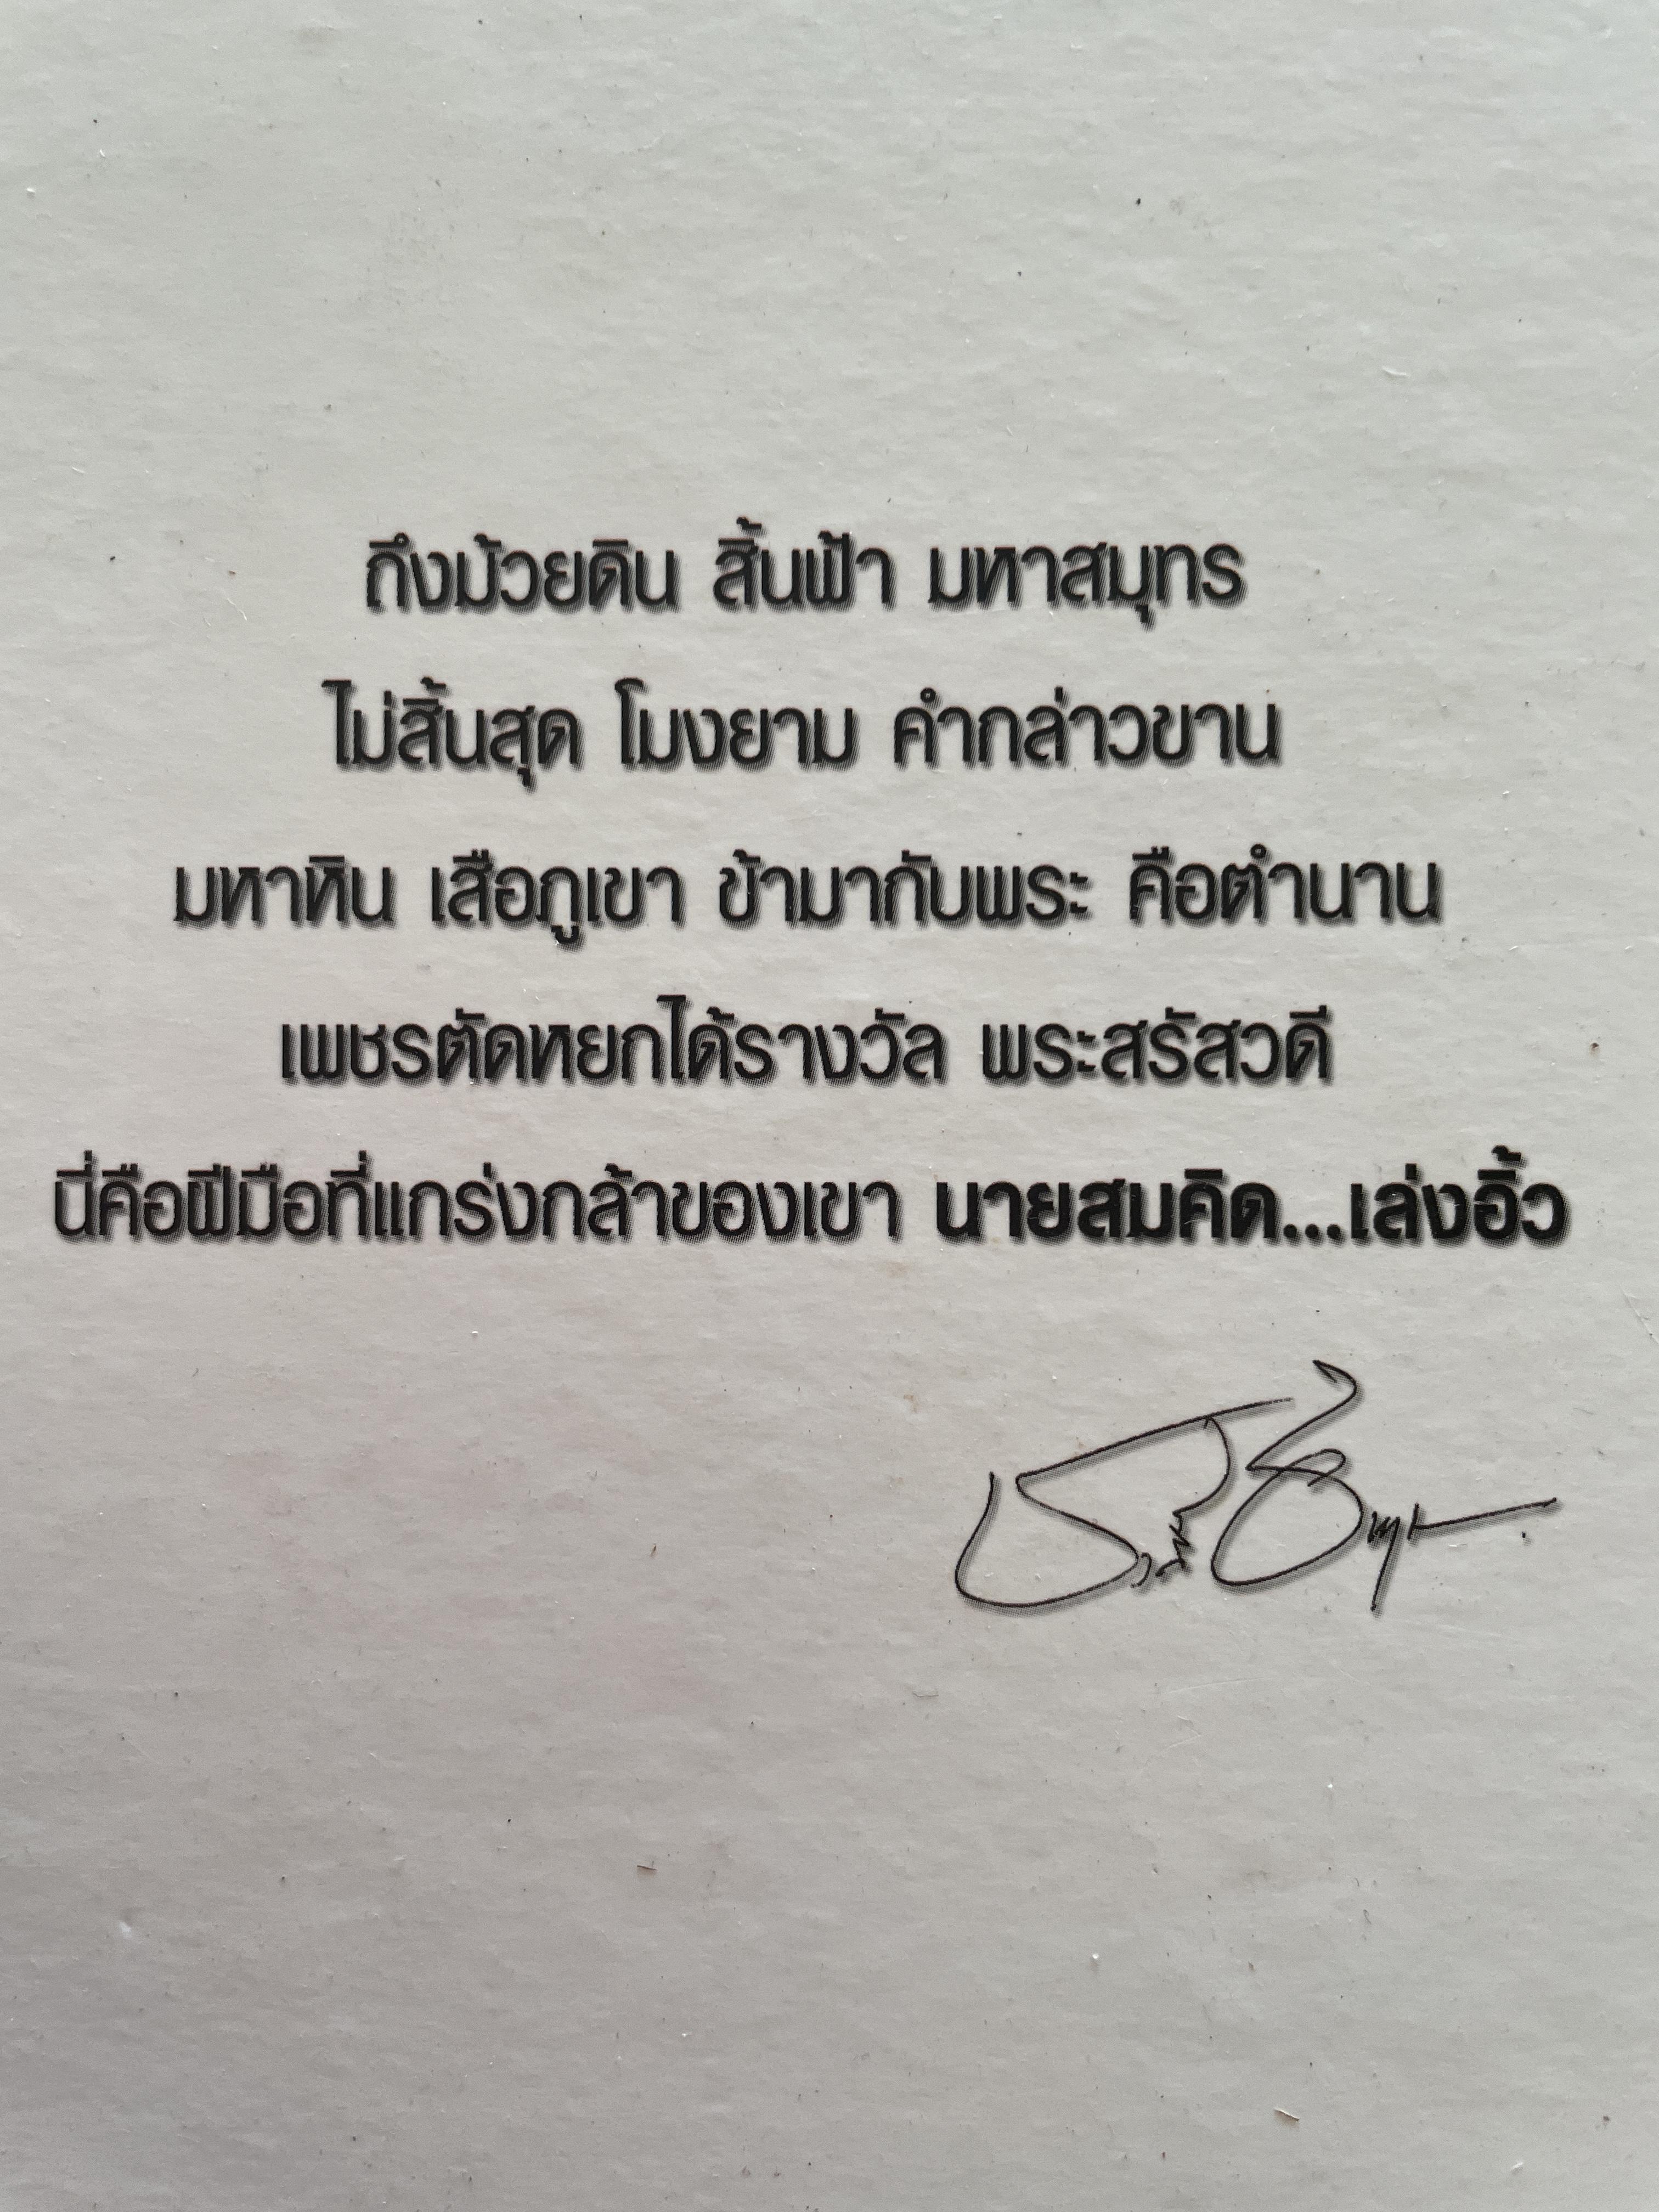 ถึงม้วยดิน สิ้นฟ้า มหาสมุทร
ไม่สิ้นสุด โมงยาม คำกล่าวขาน
มหาหิน เสือภูเขา ข้ามากับพระ คือตำนาน
เพชรตัดหยกได้รางวัล พระสรัสวดี
นี่คือฝีมือที่แกร่งกล้าของเขา นายสมคิด...เล่งอิ้ว